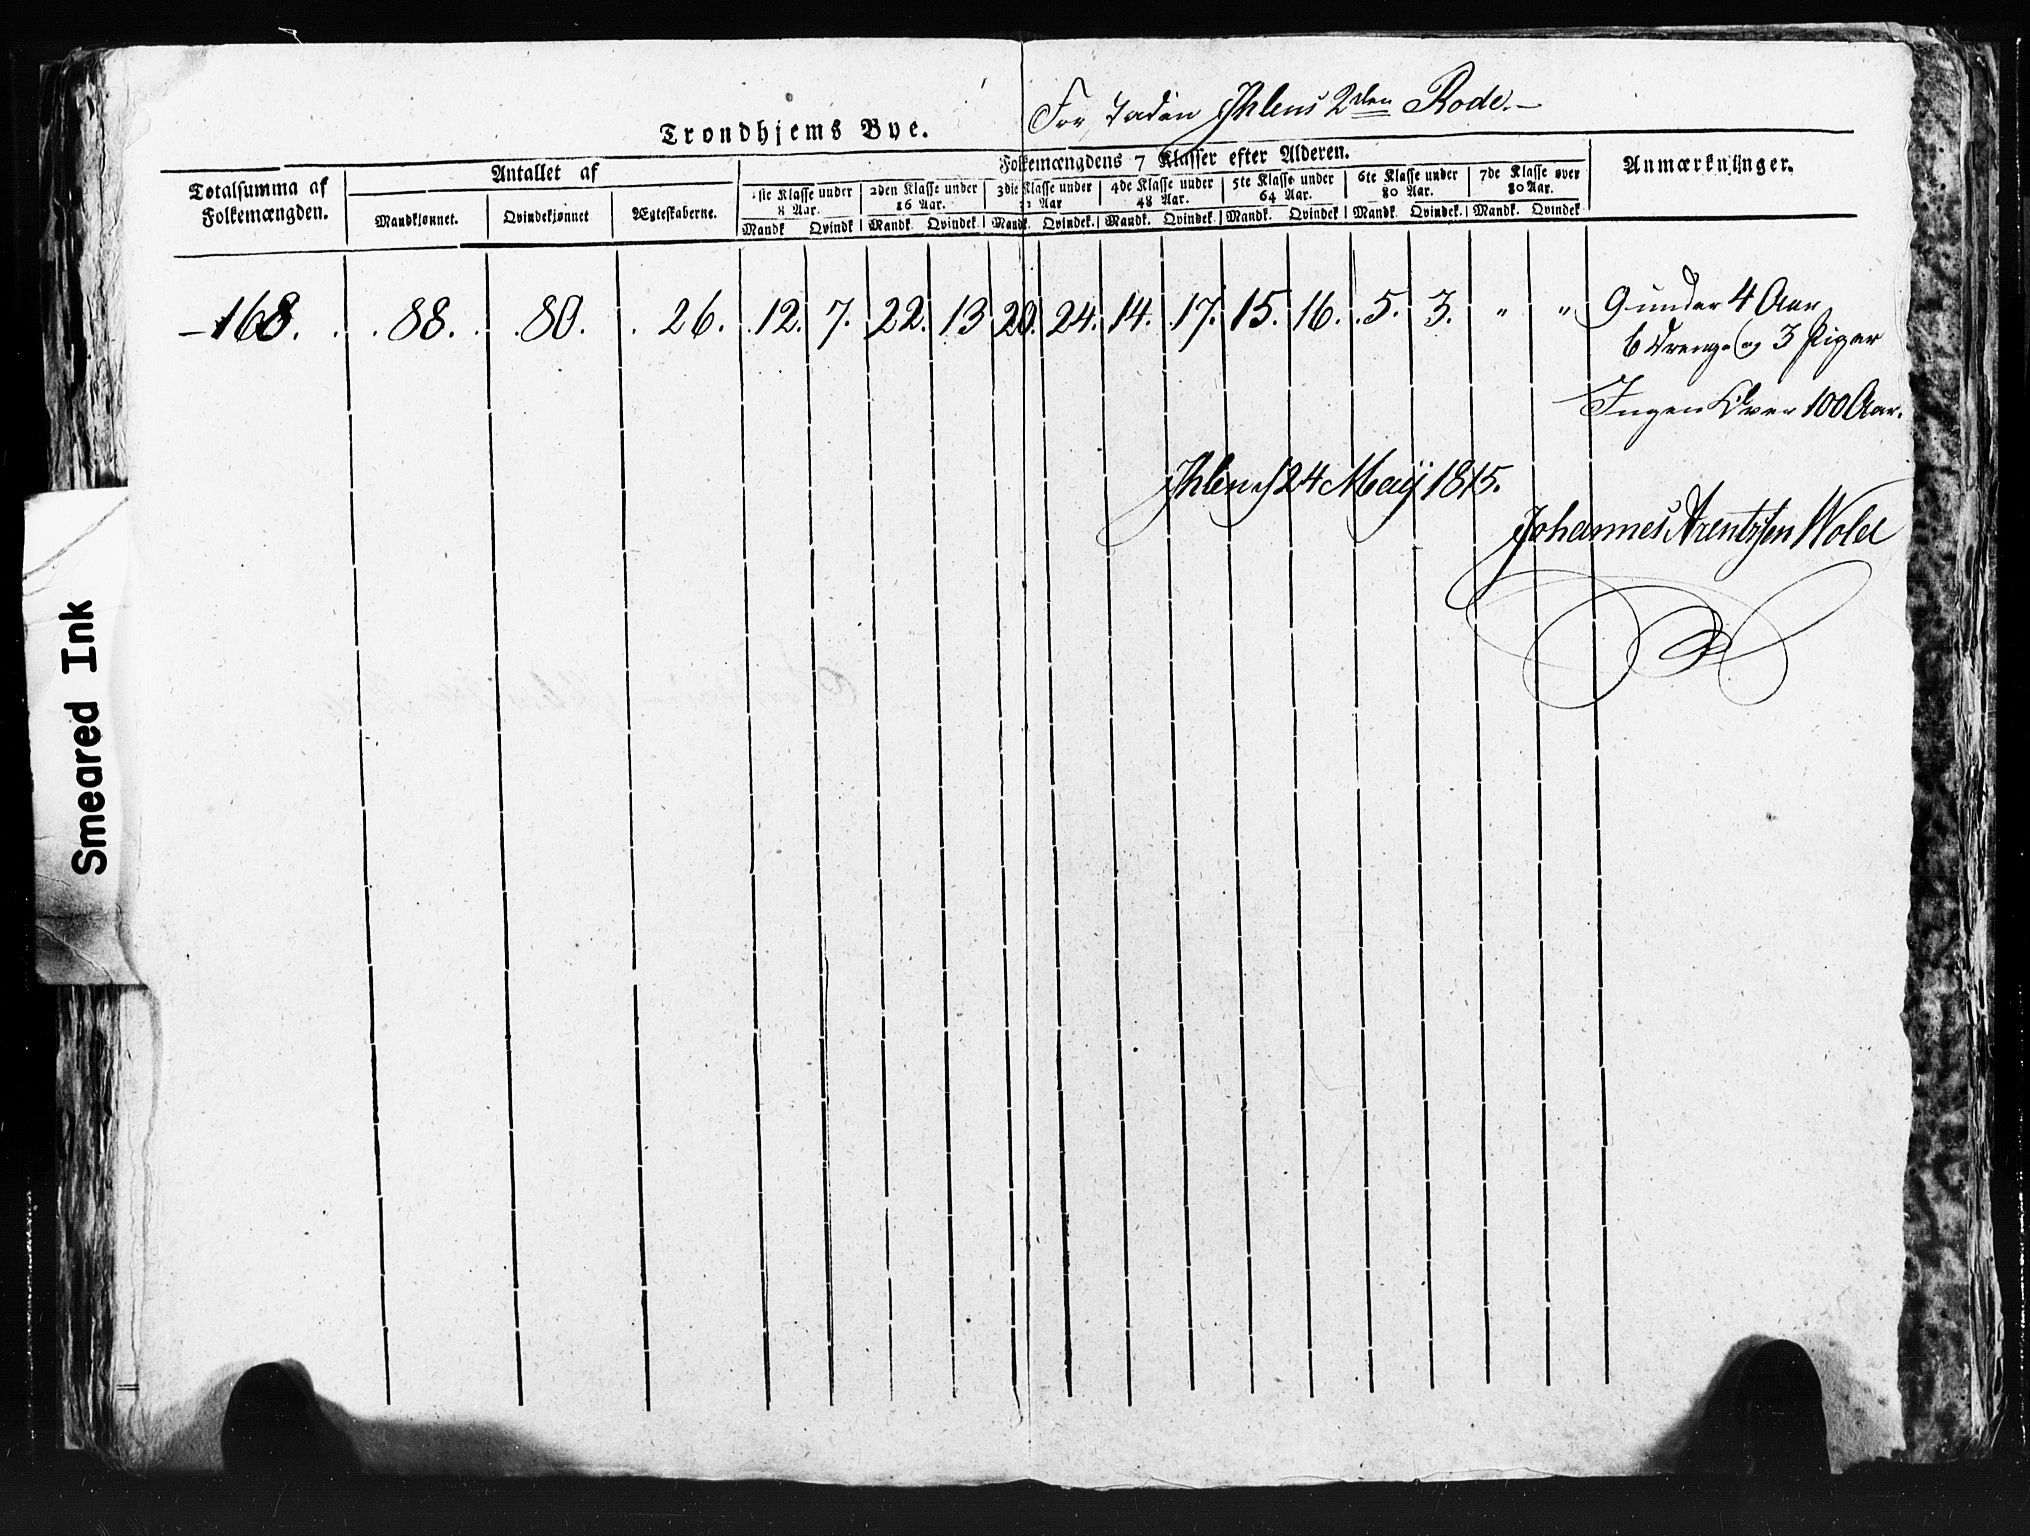 For Staden Ihlens 2den Rode.
Trondhjems Bye.
Totalsumma af Folkemængden. Antallet af Folkemængdens 7 Klasser efter Alderen. Anmærkninger.
Mandkjønnet. Qvindekjønnet Ægteskaberne. 1ste Klasse under 8 Aar. 2den Klasse under 16 Aar. 3die Klasse under Aar 4de Klasse under 48 Aar. 5te Klasse under 64 Aar. 6te Klasse under 80 Aar. 7de Klasse over 80 Aar.
Mandk Qvindk Mandk. Qvindek. Mandk. Qvindek. Mandk. Qvindek. Mandk. Qvindek. Mandk. Qvindek. Mandk. Qvindek
168. 88. 80. 26. 12. 7. 22. 13 20. 24. 14. 17. 15. 16. 5. 3. " " 9 under 4 Aar
6 Drenge og 3 Piger
Ingen Over 100 Aar.
Ihlen d 24 Maij 1815.
Johannes Arentzen Wold
Smeared Ink